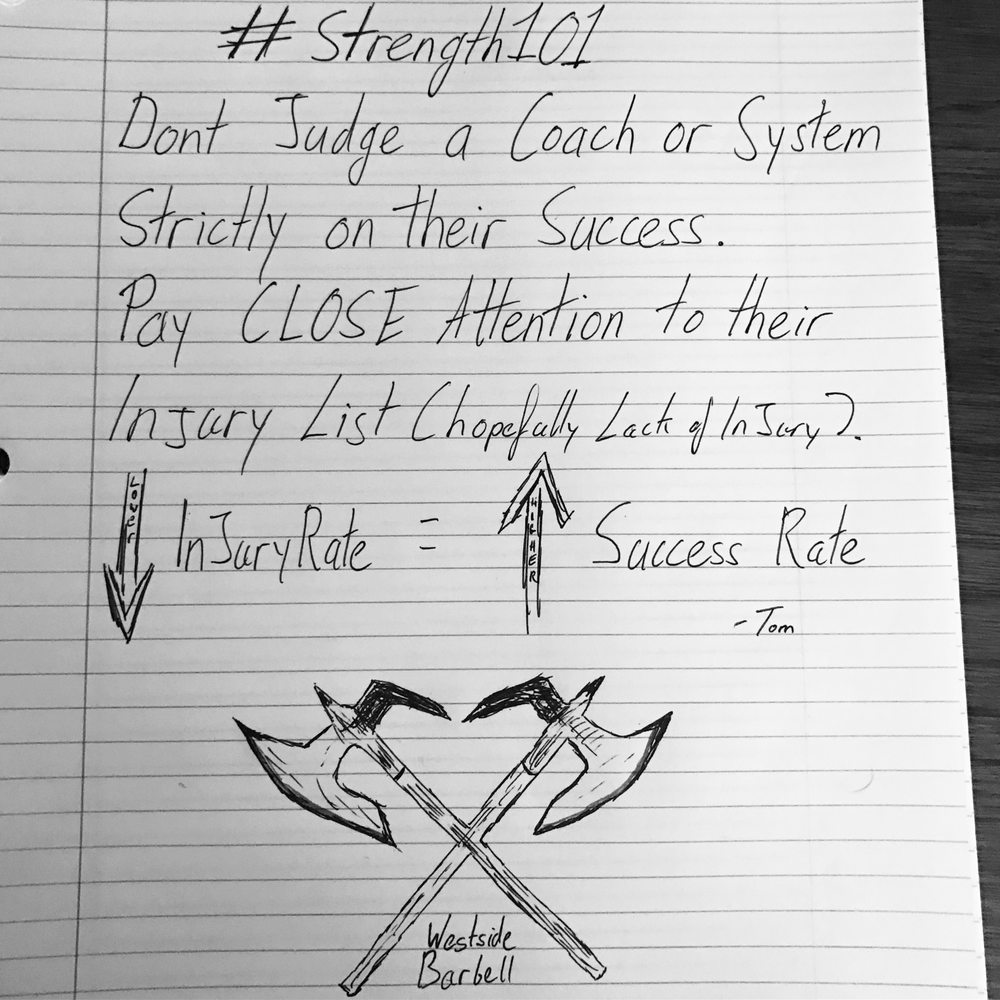 # Strength101
Dont Judge a Coach or System
Strictly on their Success.
Pay CLOSE Attention to their
Injury List (hopefully Lack of Injury).
LOWER Injury Rate = HIGHER Success Rate
- Tom
Westside
Barbell